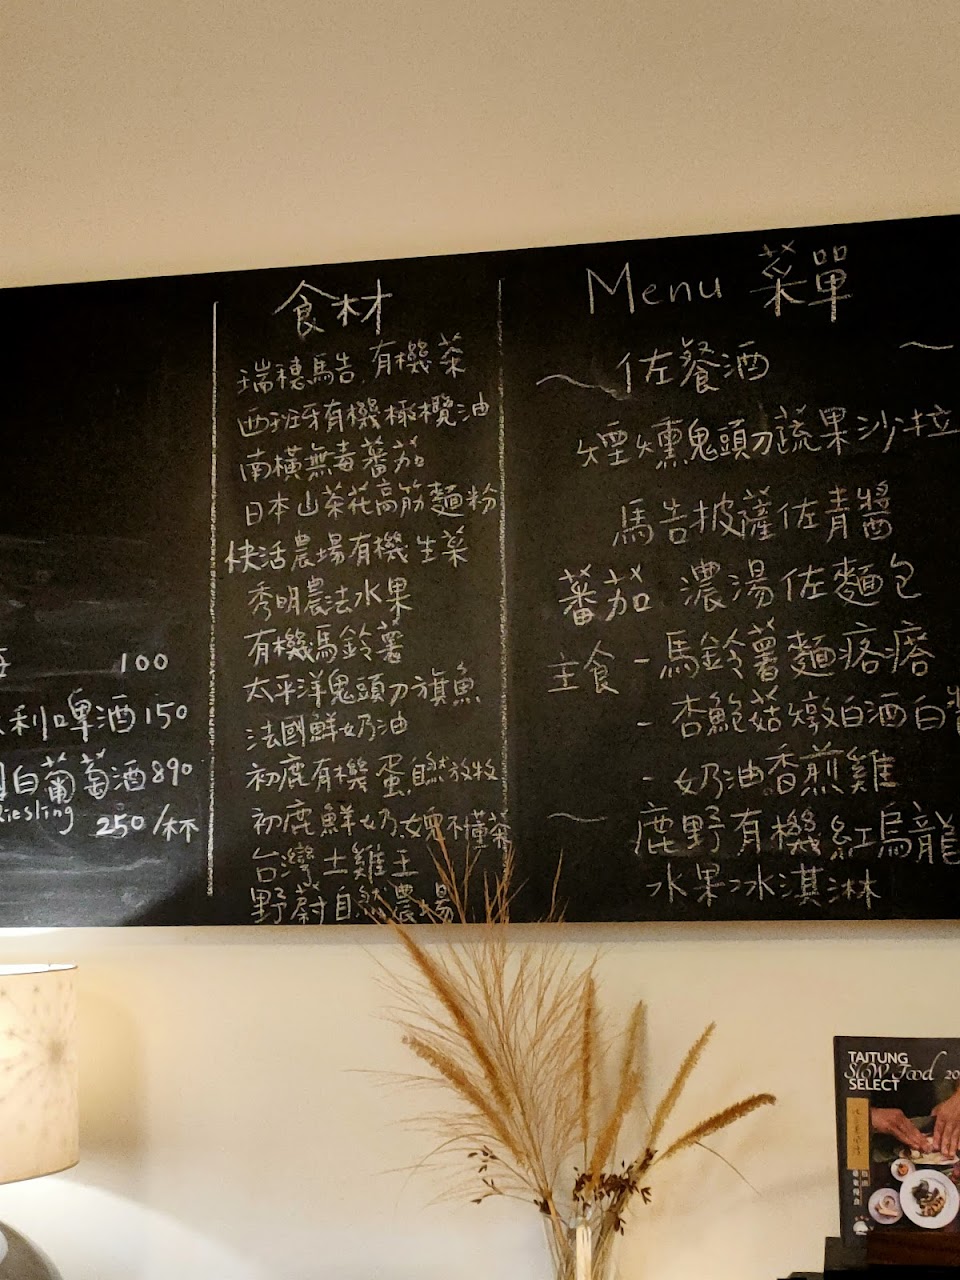 100
利啤酒150
白葡萄酒890
Riesling
250/杯
食材
瑞穗馬告.有機茶
西班牙有機橄欖油
南橫無毒蕃茄
日本山茶花高筋麵粉
快活農場有機生菜
秀明農法水果
有機馬鈴薯
太平洋鬼頭刀旗魚
法國鮮奶油
初鹿有機蛋.自然放牧
初鹿鮮奶.
台灣土雞王
野蔚自然農場
Menu 菜單
~ 佐餐酒 ~
煙燻鬼頭刀蔬果沙拉
馬告披薩佐青醬
蕃茄濃湯佐麵包
主食-馬鈴薯麵疙瘩
-杏鮑菇燉白酒白醬
-奶油香煎雞
~ 鹿野有機紅烏龍
水果冰淇淋
TAITUNG
Slow Food 20
SELECT